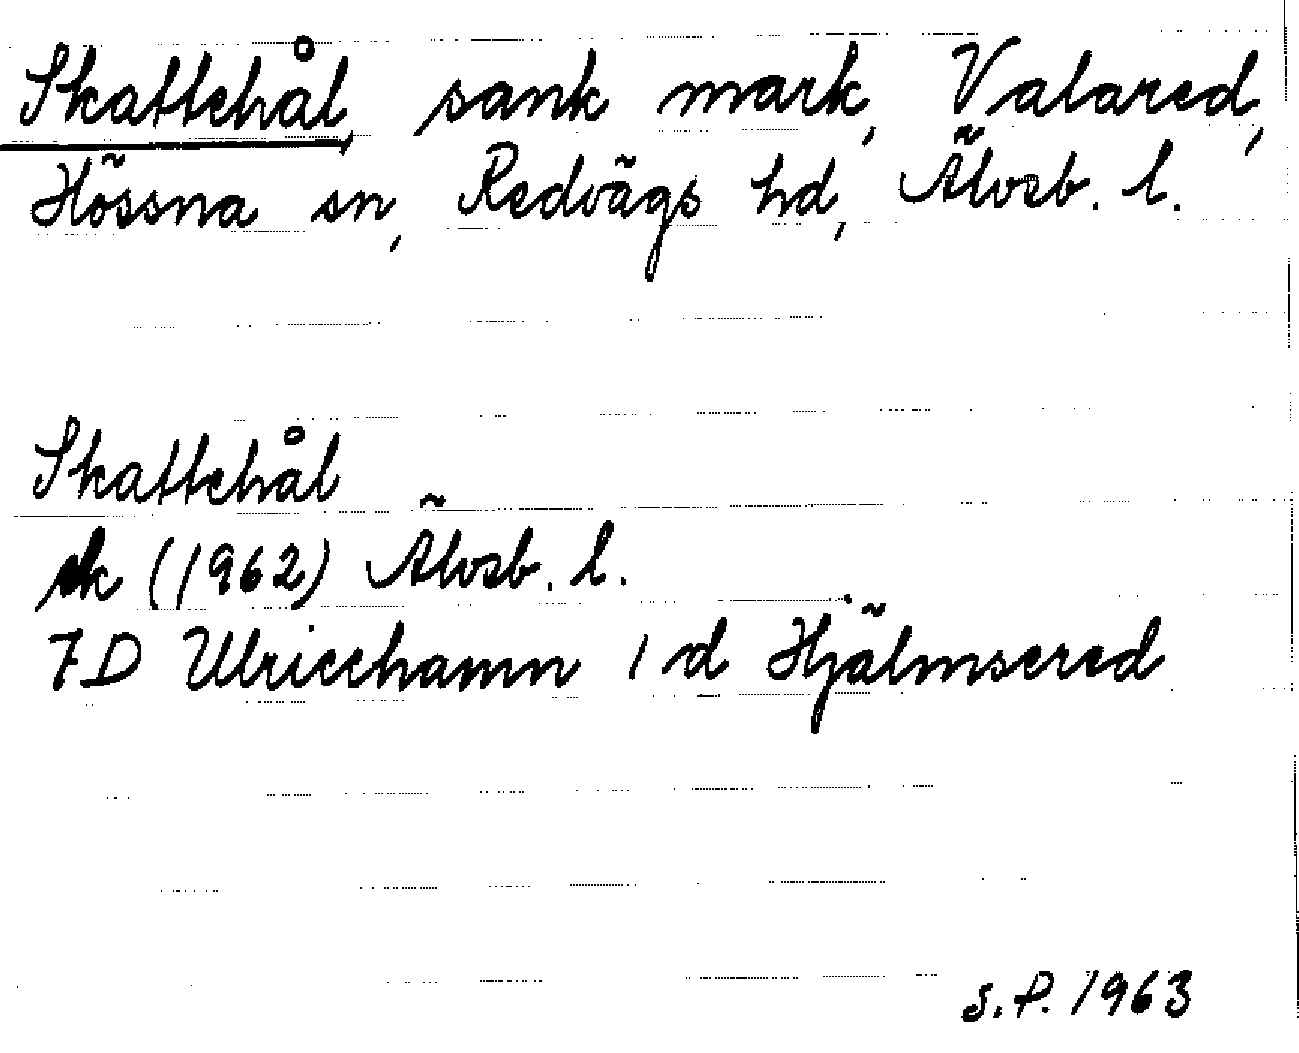 Skattehål, sank mark, Valared,
Hössna sn, Redvägs hd, Älvsb. l.
Skattehål
ek (1962) Älvsb. l.
7D Ulricehamn 1 d Hjälmsered
S.P. 1963